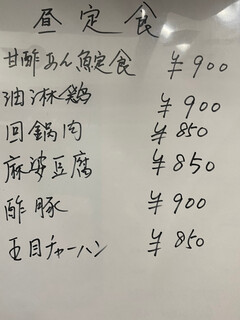 昼定食
甘酢あん魚定食 ¥900
油淋鶏 ¥900
回鍋肉 ¥850
麻婆豆腐 ¥850
酢豚 ¥900
五目チャーハン ¥850